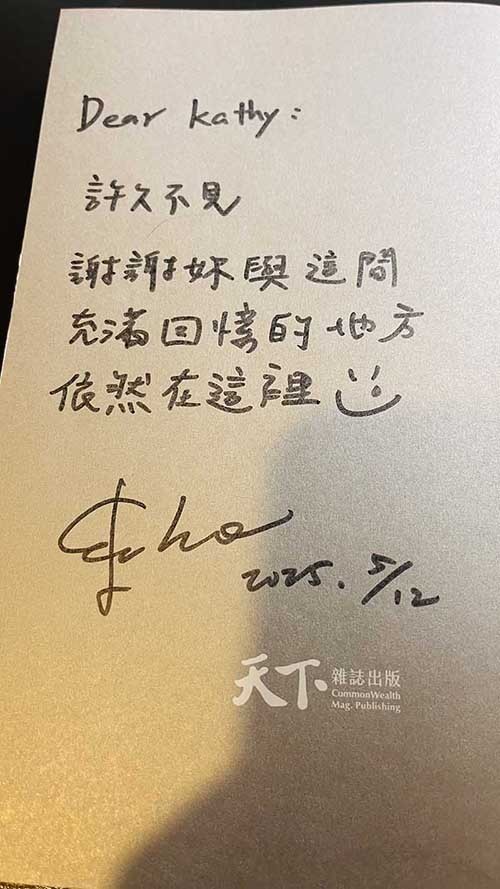 Dear Kathy:
許久不見
謝謝妳與這間
充滿回憶的地方
依然在這裡
2025. 5/12
天下 雜誌出版
CommonWealth
Mag. Publishing